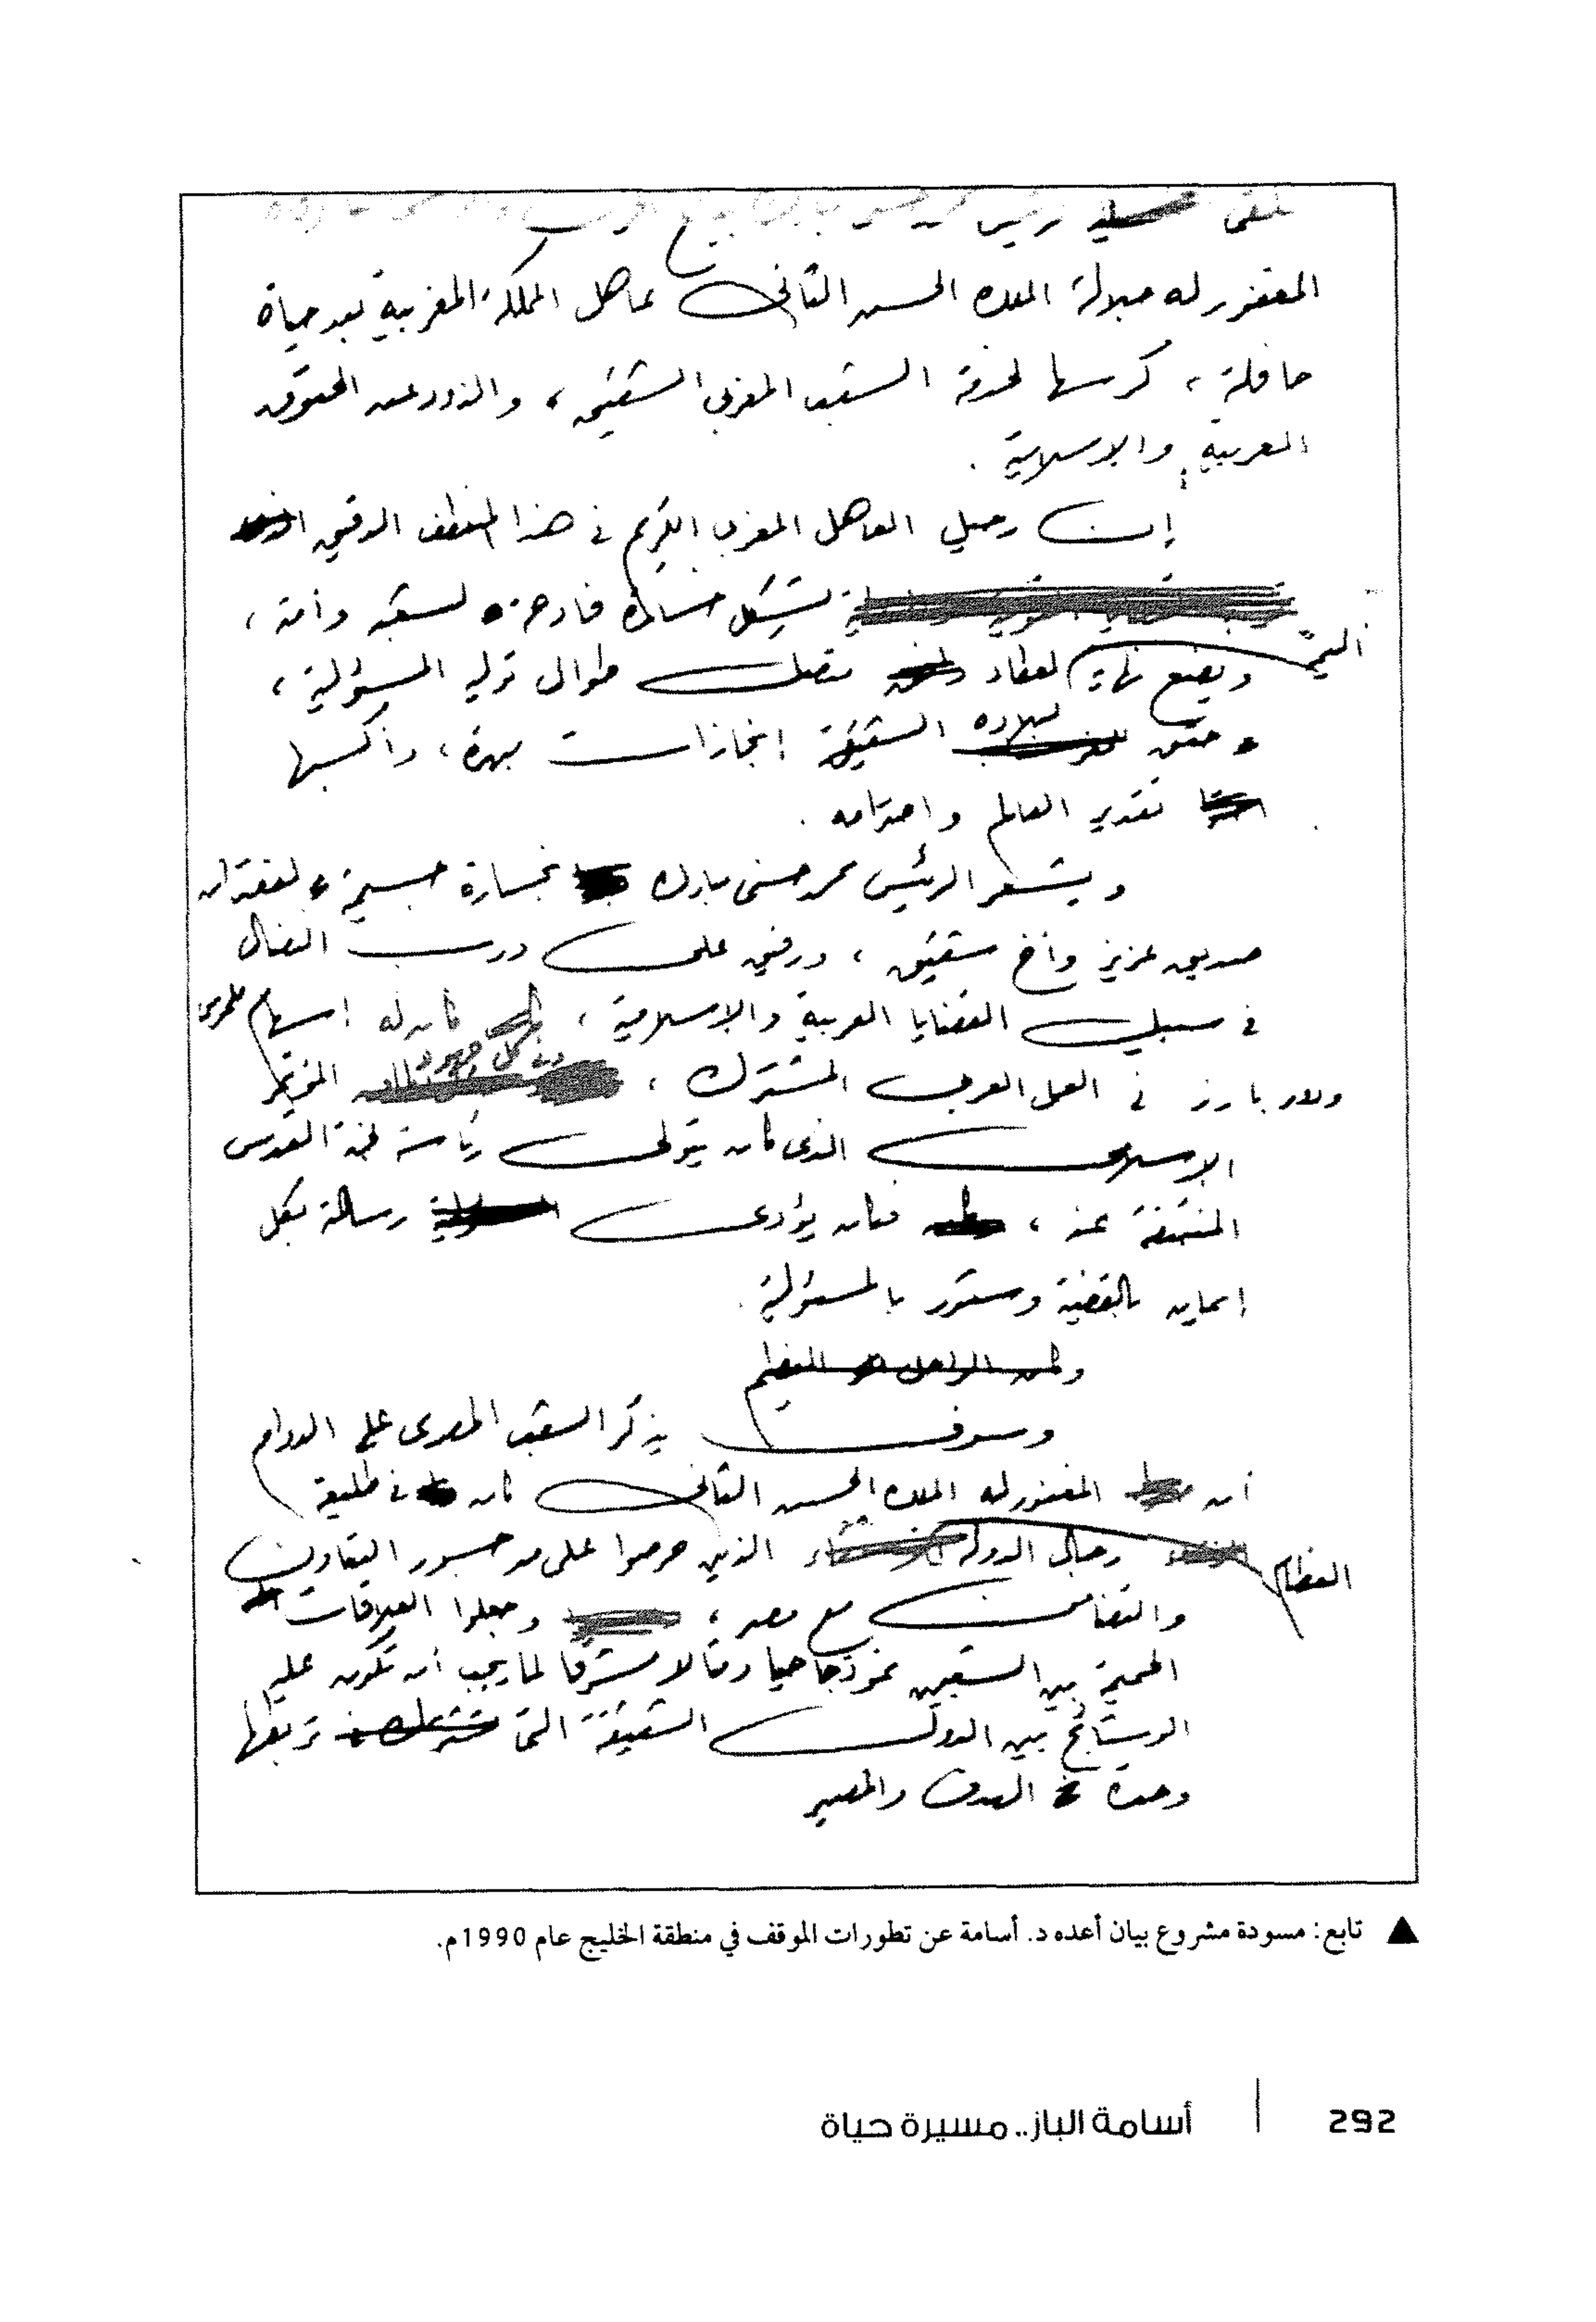 تلقى الرئيس محمد حسنى مبارك
المغفور له جلالة الملك الحسن الثانى عاهل المملكة المغربية بعد حياة
حافلة ، كرسها لخدمة الشعب المغربى الشقيق ، والذود عن الحقوق
العربية والاسلامية .
إن رحيل العاهل المغربى الكريم فى هذا المنعطف الدقيق
يشكل خسارة فادحة لشعبه وأمته ،
أليمة
ويضع نهاية لعطاء متصل طوال توليه المسئولية ،
حقق لبلاده الشقيقة إنجازات مبهرة ، وأكسبها
تقدير العالم واحترامه .
ويشعر الرئيس محمد حسنى مبارك بخسارة جسيمة لفقدان
صديق عزيز وأخ شقيق ، ورفيق على درب النضال
فى سبيل القضايا العربية والاسلامية ، كان له إسهام
ودور بارز فى العمل العربى المشترك ، المؤتمر
الإسلامى الذى كان يتولى رئاسة لجنة القدس
المنبثقة عنه ، فكان يؤدى رسالته بكل
إيمان بالقضية وشعور بالمسئولية .
وسوف يذكر الشعب المصرى على الدوام
أن المغفور له الملك الحسن الثانى كان فى طليعة
رجال الدولة العظام الذين حرصوا على مد جسور التعاون
والتضامن مع مصر ، وجعلوا العلاقات
الحميمة بين الشعبين نموذجا حيا ومثالا مشرفا لما يجب أن تكون عليه
الوشائج بين الدول الشقيقة التى تربطها
وحدة الهدف والمصير
▲ تابع: مسودة مشروع بيان أعده د. أسامة عن تطورات الموقف في منطقة الخليج عام 1990م.
292 | أسامة الباز.. مسيرة حياة